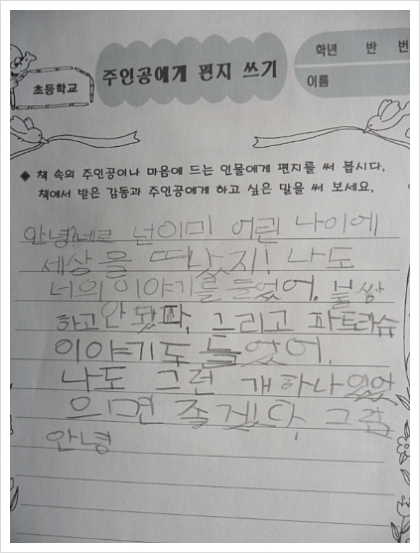 초등학교
주인공에게 편지 쓰기
학년 반 번
이름
◆ 책 속의 주인공이나 마음에 드는 인물에게 편지를 써 봅시다.
책에서 받은 감동과 주인공에게 하고 싶은 말을 써 보세요.
안녕 네로 넌 이미 어린 나이에
세상을 떠났지! 나도
너의 이야기를 들었어. 불쌍
하고 안 됐다. 그리고 파트라슈
이야기도 들었어.
나도 그런 개 하나 있었
으면 좋겠다. 그럼
안녕